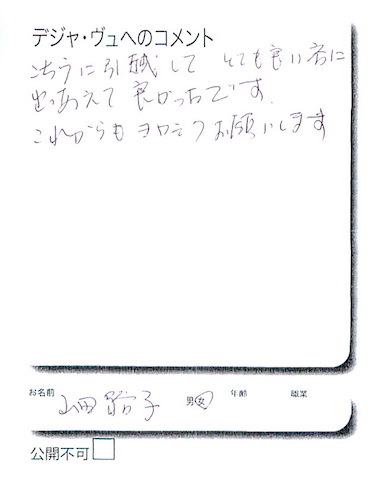 デジャ・ヴュへのコメント
こちらに引越して とても良い方に
出あえて 良かったです。
これからも ヨロシクお願いします
お名前 山田 子 男 女 年齢 職業
公開不可